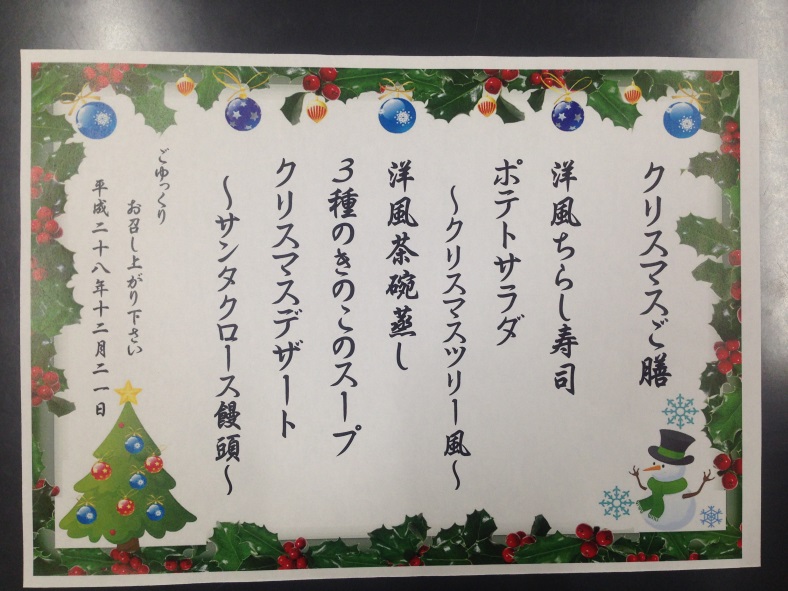 クリスマスご膳
洋風ちらし寿司
ポテトサラダ
～クリスマスツリー風～
洋風茶碗蒸し
３種のきのこのスープ
クリスマスデザート
～サンタクロース饅頭～
ごゆっくり
お召し上がり下さい
平成二十八年十二月二一日